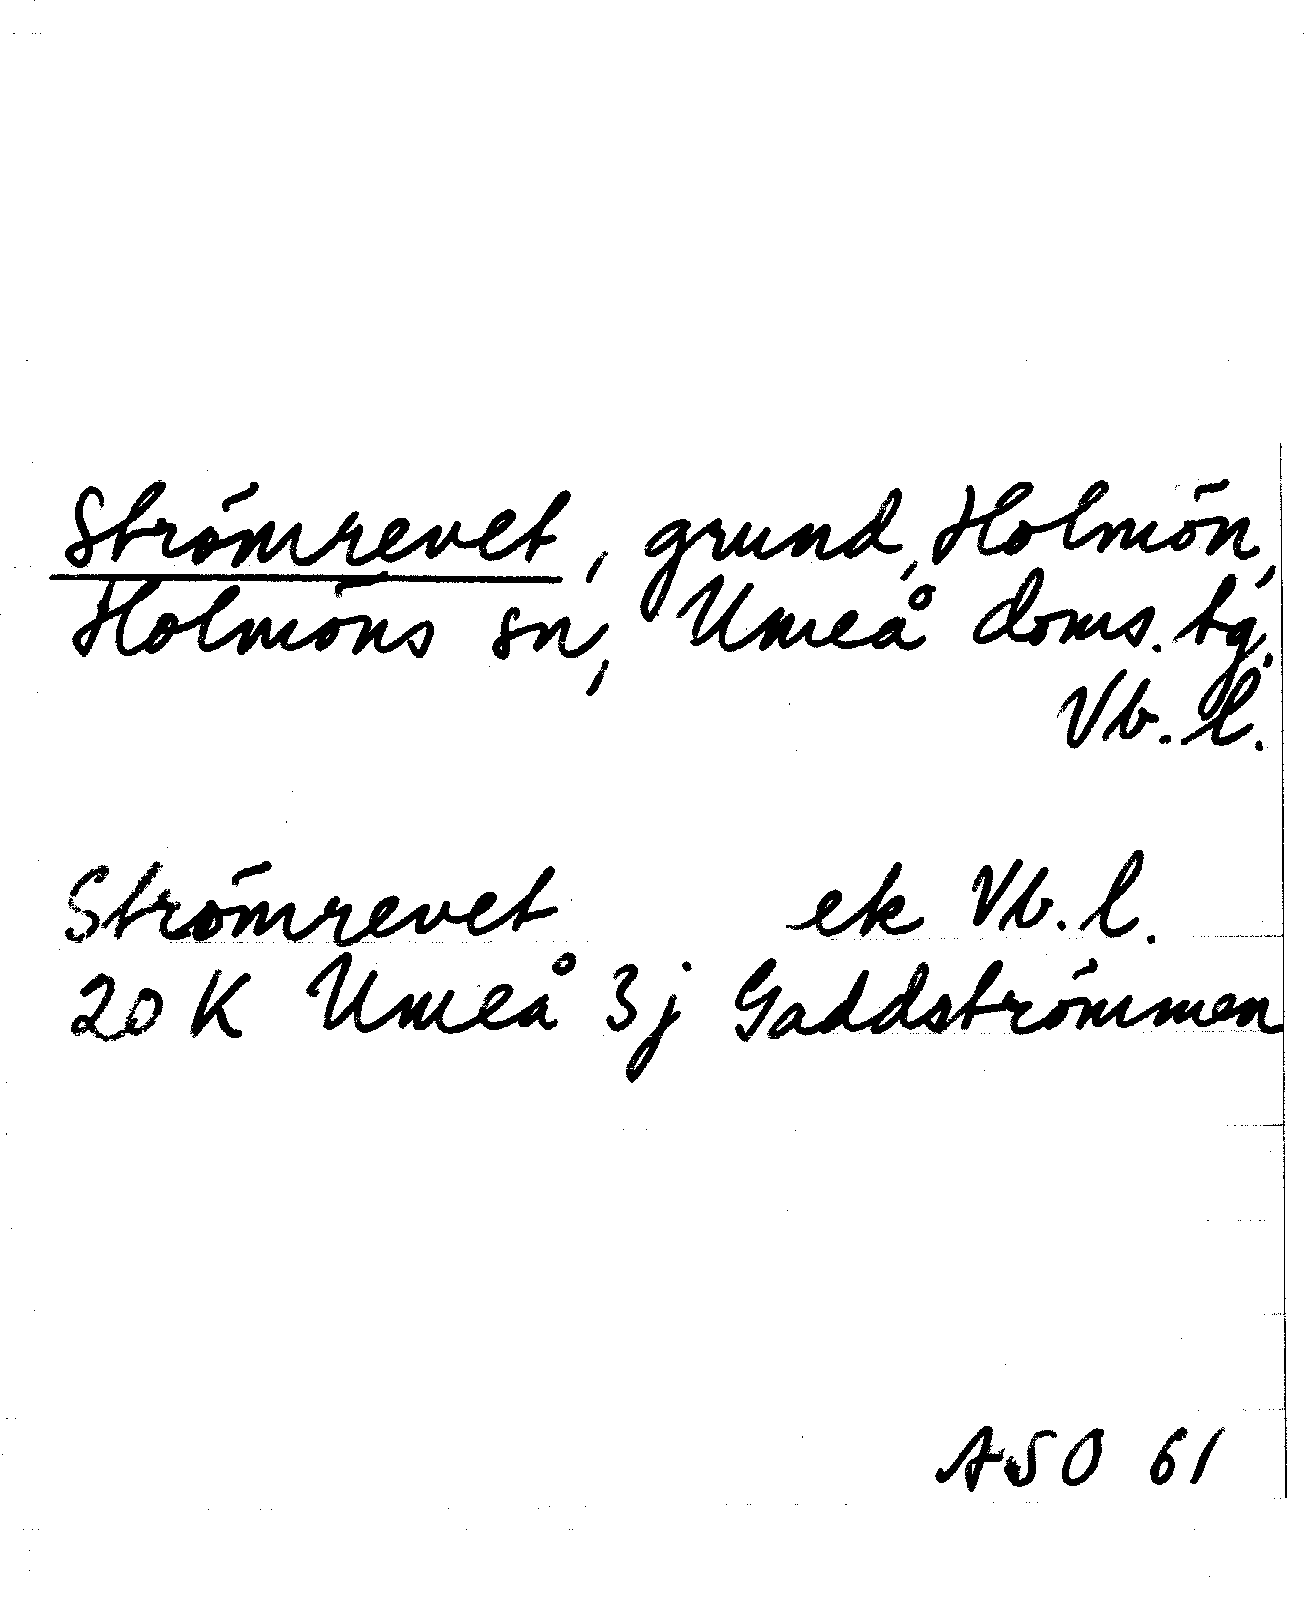 Strömrevet, grund, Holmön,
Holmöns sn, Umeå doms. tg.
Vb. l.
Strömrevet ek Vb. l.
20 K Umeå 3j Gaddströmmen
ASO 61